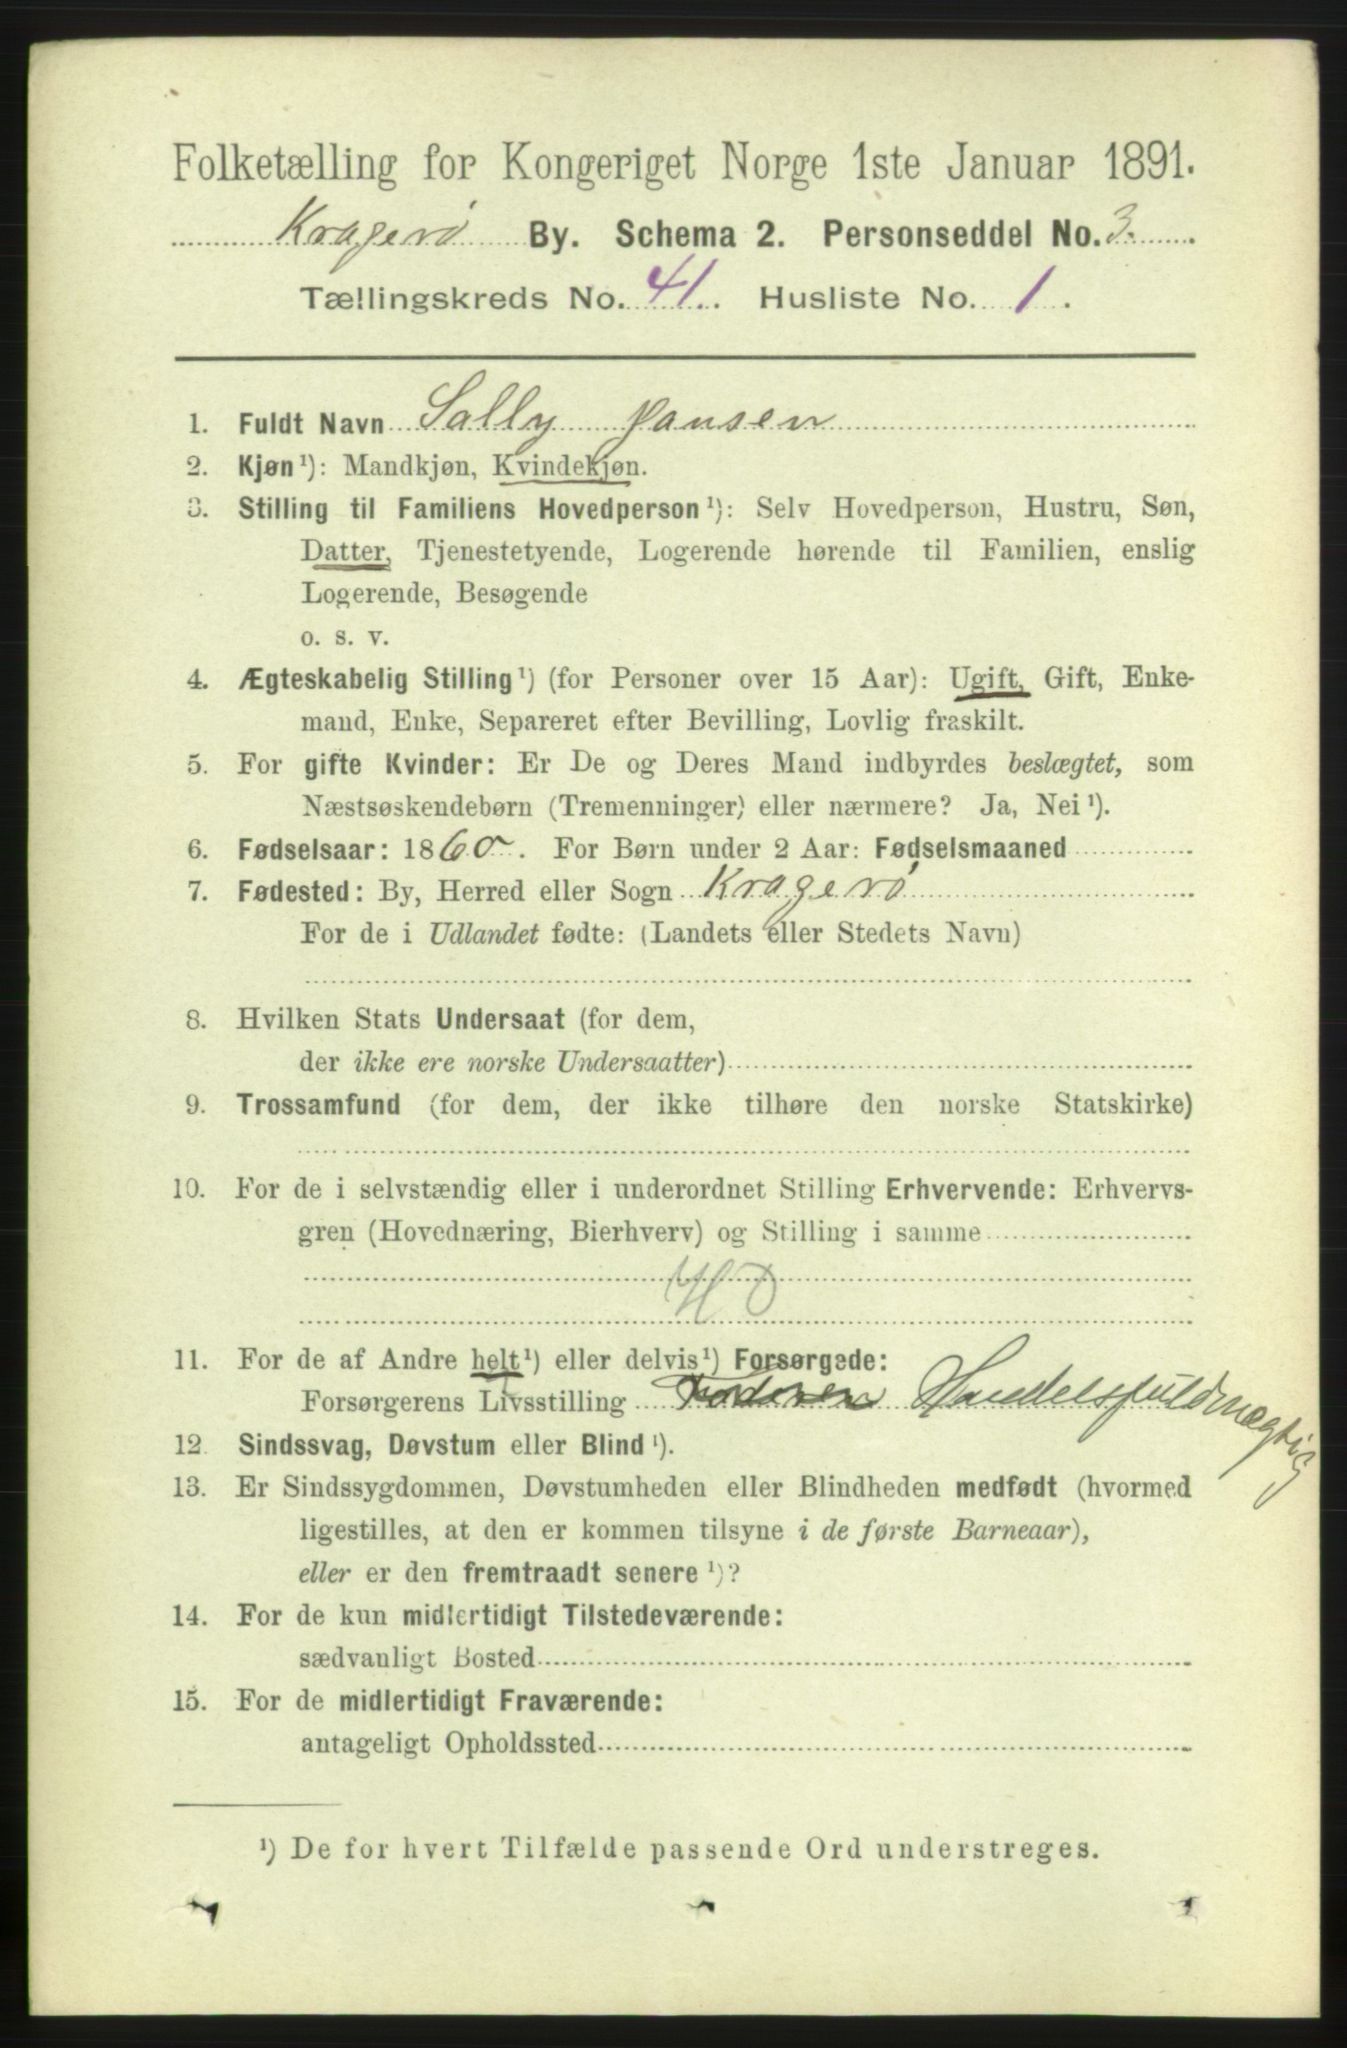 Folketælling for Kongeriget Norge 1ste Januar 1891.
Kragerø By. Schema 2. Personseddel No. 3.
Tællingskreds No. 41. Husliste No. 1.
1. Fuldt Navn Sally Jansen
2. Kjøn¹): Mandkjøn, Kvindekjøn.
3. Stilling til Familiens Hovedperson¹): Selv Hovedperson, Hustru, Søn,
Datter, Tjenestetyende, Logerende hørende til Familien, enslig
Logerende, Besøgende
o. s. v.
4. Ægteskabelig Stilling¹) (for Personer over 15 Aar): Ugift, Gift, Enke-
mand, Enke, Separeret efter Bevilling, Lovlig fraskilt.
5. For gifte Kvinder: Er De og Deres Mand indbyrdes beslægtet, som
Næstsøskendebørn (Tremenninger) eller nærmere? Ja, Nei¹).
6. Fødselsaar: 1860. For Børn under 2 Aar: Fødselsmaaned
7. Fødested: By, Herred eller Sogn Kragerø
For de i Udlandet fødte: (Landets eller Stedets Navn)
8. Hvilken Stats Undersaat (for dem,
der ikke ere norske Undersaatter)
9. Trossamfund (for dem, der ikke tilhøre den norske Statskirke)
10. For de i selvstændig eller i underordnet Stilling Erhvervende: Erhvervs-
gren (Hovednæring, Bierhverv) og Stilling i samme
HD
11. For de af Andre helt¹) eller delvis¹) Forsørgede:
Forsørgerens Livsstilling Handelsfuldmægtig
12. Sindssvag, Døvstum eller Blind¹).
13. Er Sindssygdommen, Døvstumheden eller Blindheden medfødt (hvormed
ligestilles, at den er kommen tilsyne i de første Barneaar),
eller er den fremtraadt senere¹)?
14. For de kun midlertidigt Tilstedeværende:
sædvanligt Bosted
15. For de midlertidigt Fraværende:
antageligt Opholdssted
¹) De for hvert Tilfælde passende Ord understreges.